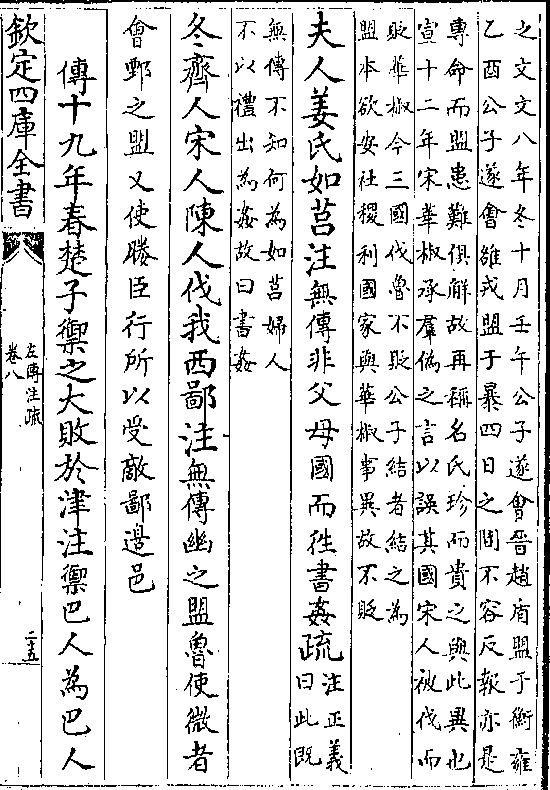 之文文八年冬十月壬午公子遂會晉趙盾盟于衡雍
乙酉公子遂會雒戎盟于暴四日之間不容反報亦是
專命而盟患難俱解故再稱名氏珍而貴之與此異也
宣十二年宋華椒承羣偽之言以誤其國宋人被伐而
貶華椒今三國伐魯不貶公子結者結之為
盟本欲安社稷利國家與華椒事異故不貶
夫人姜氏如莒注無傳非父母國而徃書姦疏
注正義
曰此既
無傳不知何為如莒婦人
不以禮出為姦故曰書姦
冬齊人宋人陳人伐我西鄙注無傳幽之盟魯使微者
會鄄之盟又使媵臣行所以受敵鄙邊邑
傳十九年春楚子禦之大敗於津注禦巴人為巴人
欽定四庫全書
左傳注疏
卷八
二五